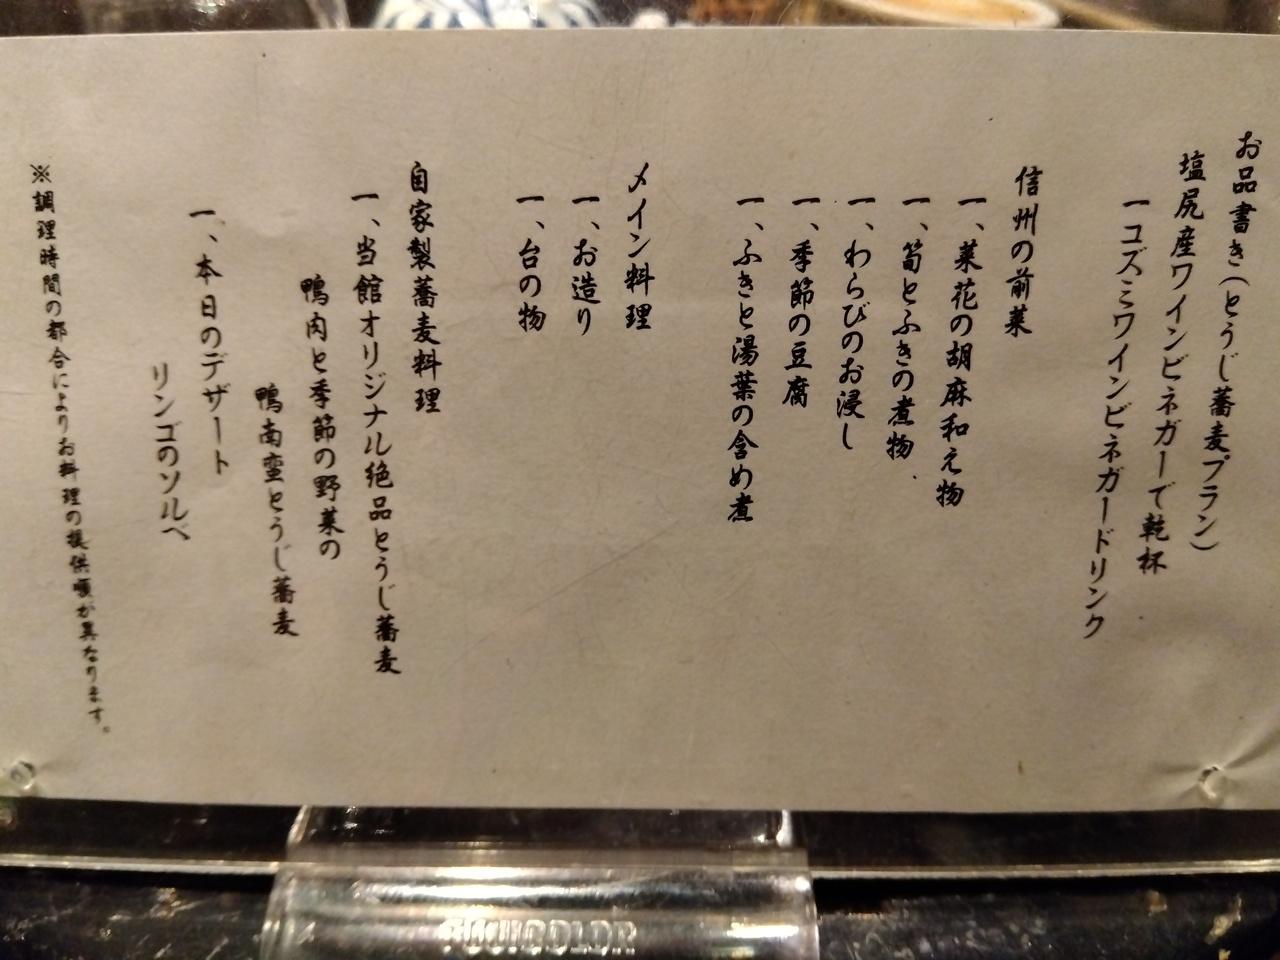 お品書き(とうじ蕎麦プラン)
塩尻産ワインビネガーで乾杯
一コズミワインビネガードリンク
信州の前菜
一、菜花の胡麻和え物
一、筍とふきの煮物
一、わらびのお浸し
一、季節の豆腐
一、ふきと湯葉の含め煮
メイン料理
一、お造り
一、台の物
自家製蕎麦料理
一、当館オリジナル絶品とうじ蕎麦
鴨肉と季節の野菜の
鴨南蛮とうじ蕎麦
一、本日のデザート
リンゴのソルベ
※調理時間の都合によりお料理の提供順が異なります。
FUJICOLOR